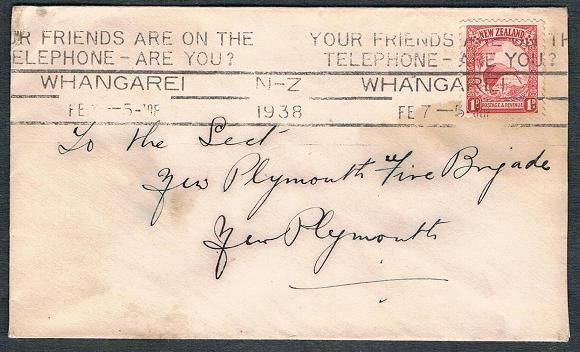 UR FRIENDS ARE ON THE YOUR FRIENDS TH
ELEPHONE – ARE YOU? TELEPHONE – ARE YOU?
WHANGAREI N–Z WHANGAREI
FE 1938 FE 7–5
NEW ZEALAND
1D 1D
POSTAGE & REVENUE
To the Sect
New Plymouth Fire Brigade
New Plymouth